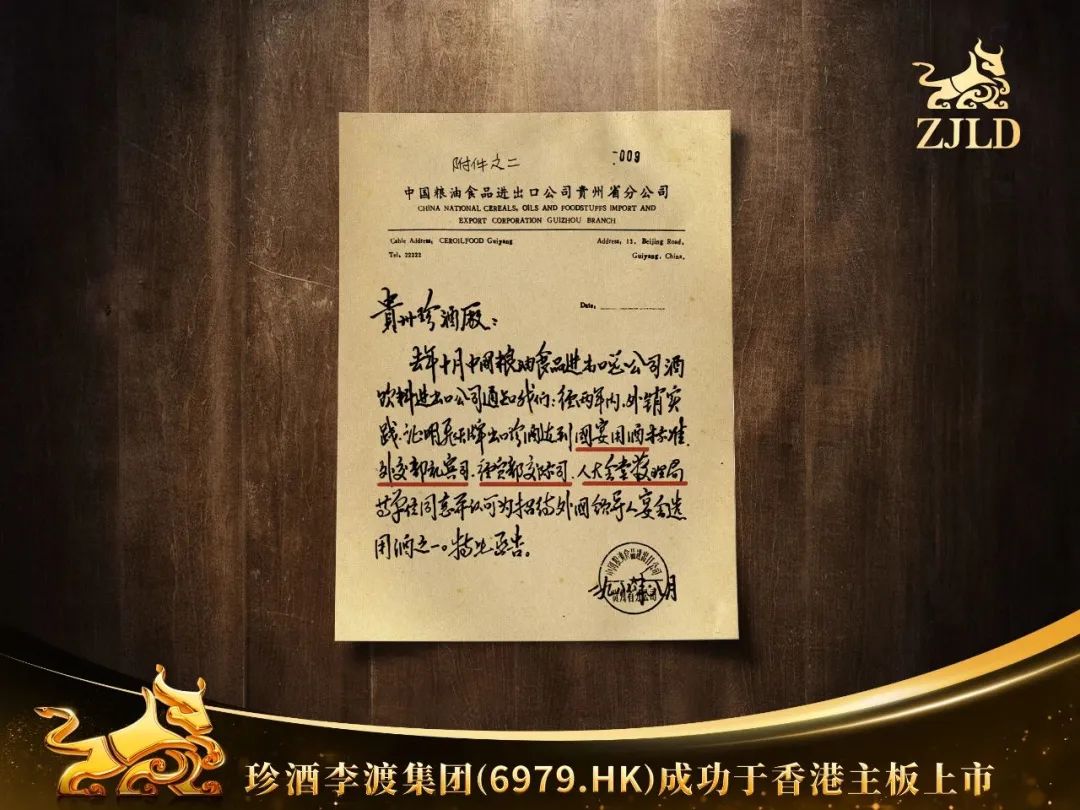 ZJLD
附件之二
009
中国粮油食品进出口公司贵州省分公司
CHINA NATIONAL CEREALS, OILS AND FOODSTUFFS IMPORT AND
EXPORT CORPORATION GUIZHOU BRANCH
Cable Address: CEROILFOOD Guiyang
Tel. 22222
Address: 13, Beijing Road,
Guiyang, China.
Date:
貴州珍酒厰:
去年十月中國粮油食品进出口总公司酒
饮料进出口公司通知我们:经两年内、外销实
践、证明 牌出口珍酒达到國宴用酒标准
外交部礼宾司、经贸部交际司、人大会堂管理局
等单位同意并认可为招待外國领导人宴会选
用酒之一。特此函告。
珍酒李渡集团(6979.HK)成功于香港主板上市